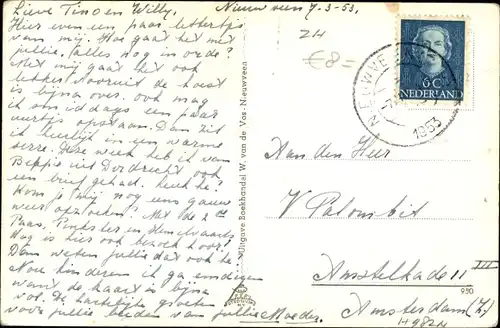 Lieve Tino en Willy. Nieuwveen 7-3-53,
Hier even een paar lettertjes
van mij. Hoe gaat het met
jullie, alles nog in orde?
Met mij gaat het ook
lekker. Vooruit de hoest
is bijna over, ook mag
ik smiddags een paar
uurtjes opstaan. Dan zit
ik heerlijk in een warme
serre. Deze week heb ik van
Beppie uit Dordrecht ook
een brief gehad. Leuk hè!
Kom je mij nog eens gauw
weer opzoeken? Met de 2de
Paas, Pinkster en Hemelvaarts
dag is hier ook bezoek hoor!
Dan weten jullie dat ook hè!
Nou kinderen ik ga eindigen
want de kaart is bijna
vol. De hartelijke groeten
voor jullie beiden van jullie Moeder.
Uitgave Boekhandel W. van de Vos - Nieuwveen
24
€8=
NIEUWVEEN
1953
6C
NEDERLAND
Aan den Heer
V Palombit
Amstelkade 11 III
Amsterdam (Z.)
930
H982A